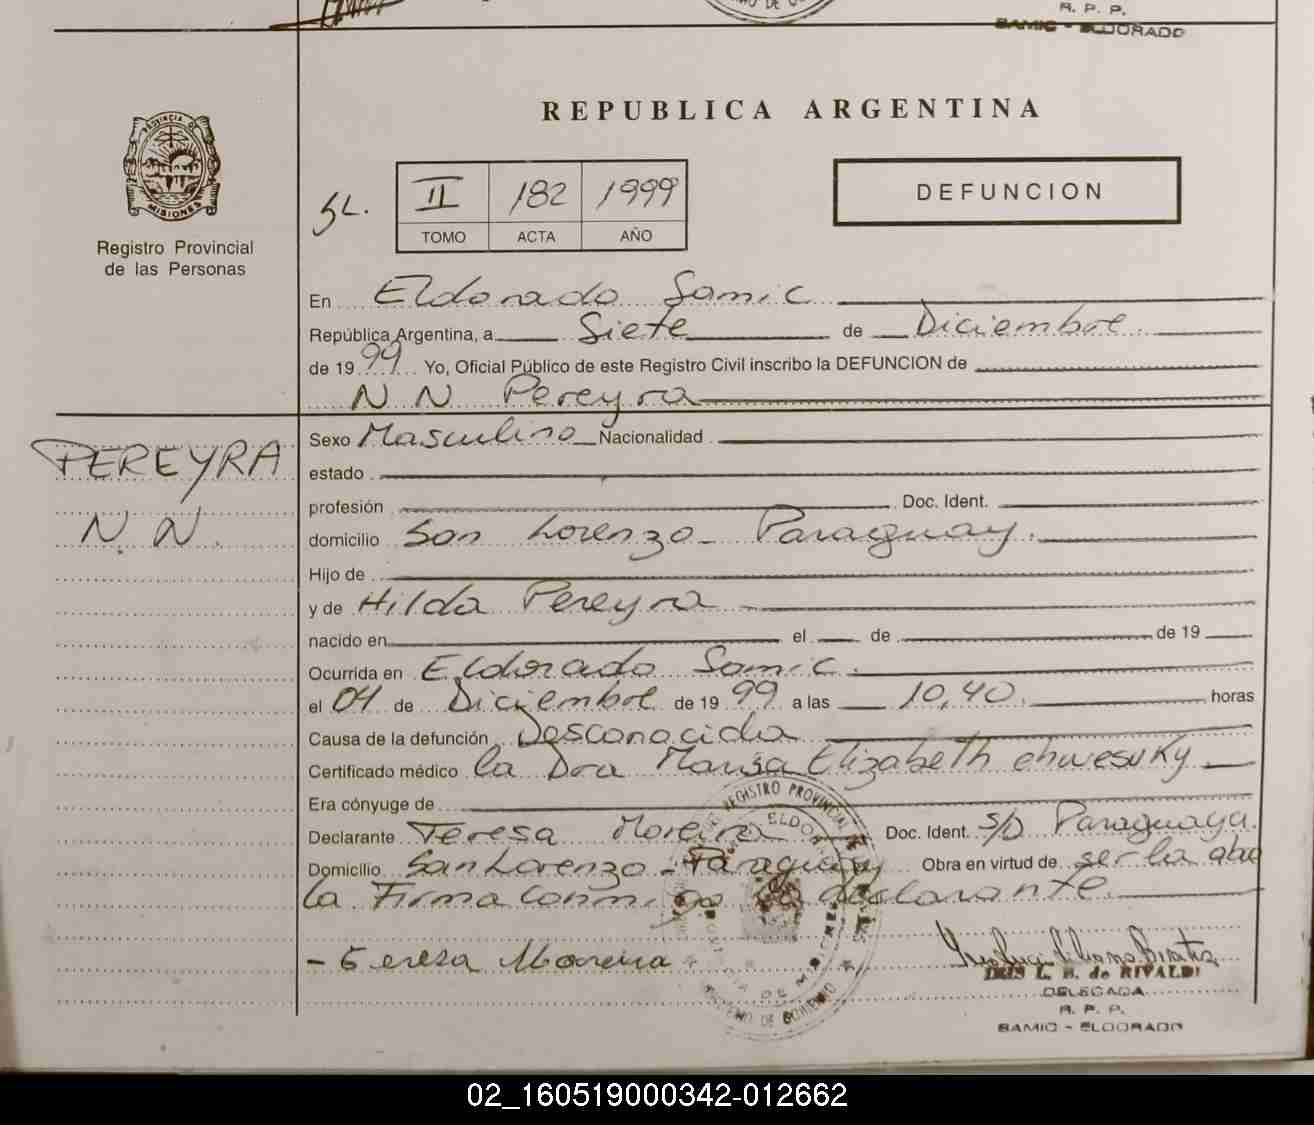 R. P. P.
SAMIC - ELDORADO
REPUBLICA ARGENTINA
PROVINCIA DE
MISIONES
Registro Provincial
de las Personas
SL.
II 182 1999
TOMO ACTA AÑO
DEFUNCION
En Eldorado Samic
República Argentina, a Siete de Diciembre
de 19 99 Yo, Oficial Público de este Registro Civil inscribo la DEFUNCION de
N N Pereyra
PEREYRA
N. N.
Sexo Masculino Nacionalidad
estado
profesión Doc. Ident.
domicilio San Lorenzo - Paraguay.
Hijo de
y de Hilda Pereyra
nacido en el de de 19
Ocurrida en Eldorado Samic.
el 04 de Diciembre de 19 99 a las 10,40. horas
Causa de la defunción Desconocida
Certificado médico la Dra Marisa Elizabeth
Era cónyuge de
Declarante Teresa Moreira Doc. Ident. S/D Paraguaya.
Domicilio San Lorenzo - Paraguay Obra en virtud de ser la abue
la Firma conmigo la declarante.
- Teresa Moreira
REGISTRO PROVINCIAL DE LAS
IRIS L. B. de RIVALDI
DELEGADA
R. P. P.
SAMIC - ELDORADO
02_160519000342-012662